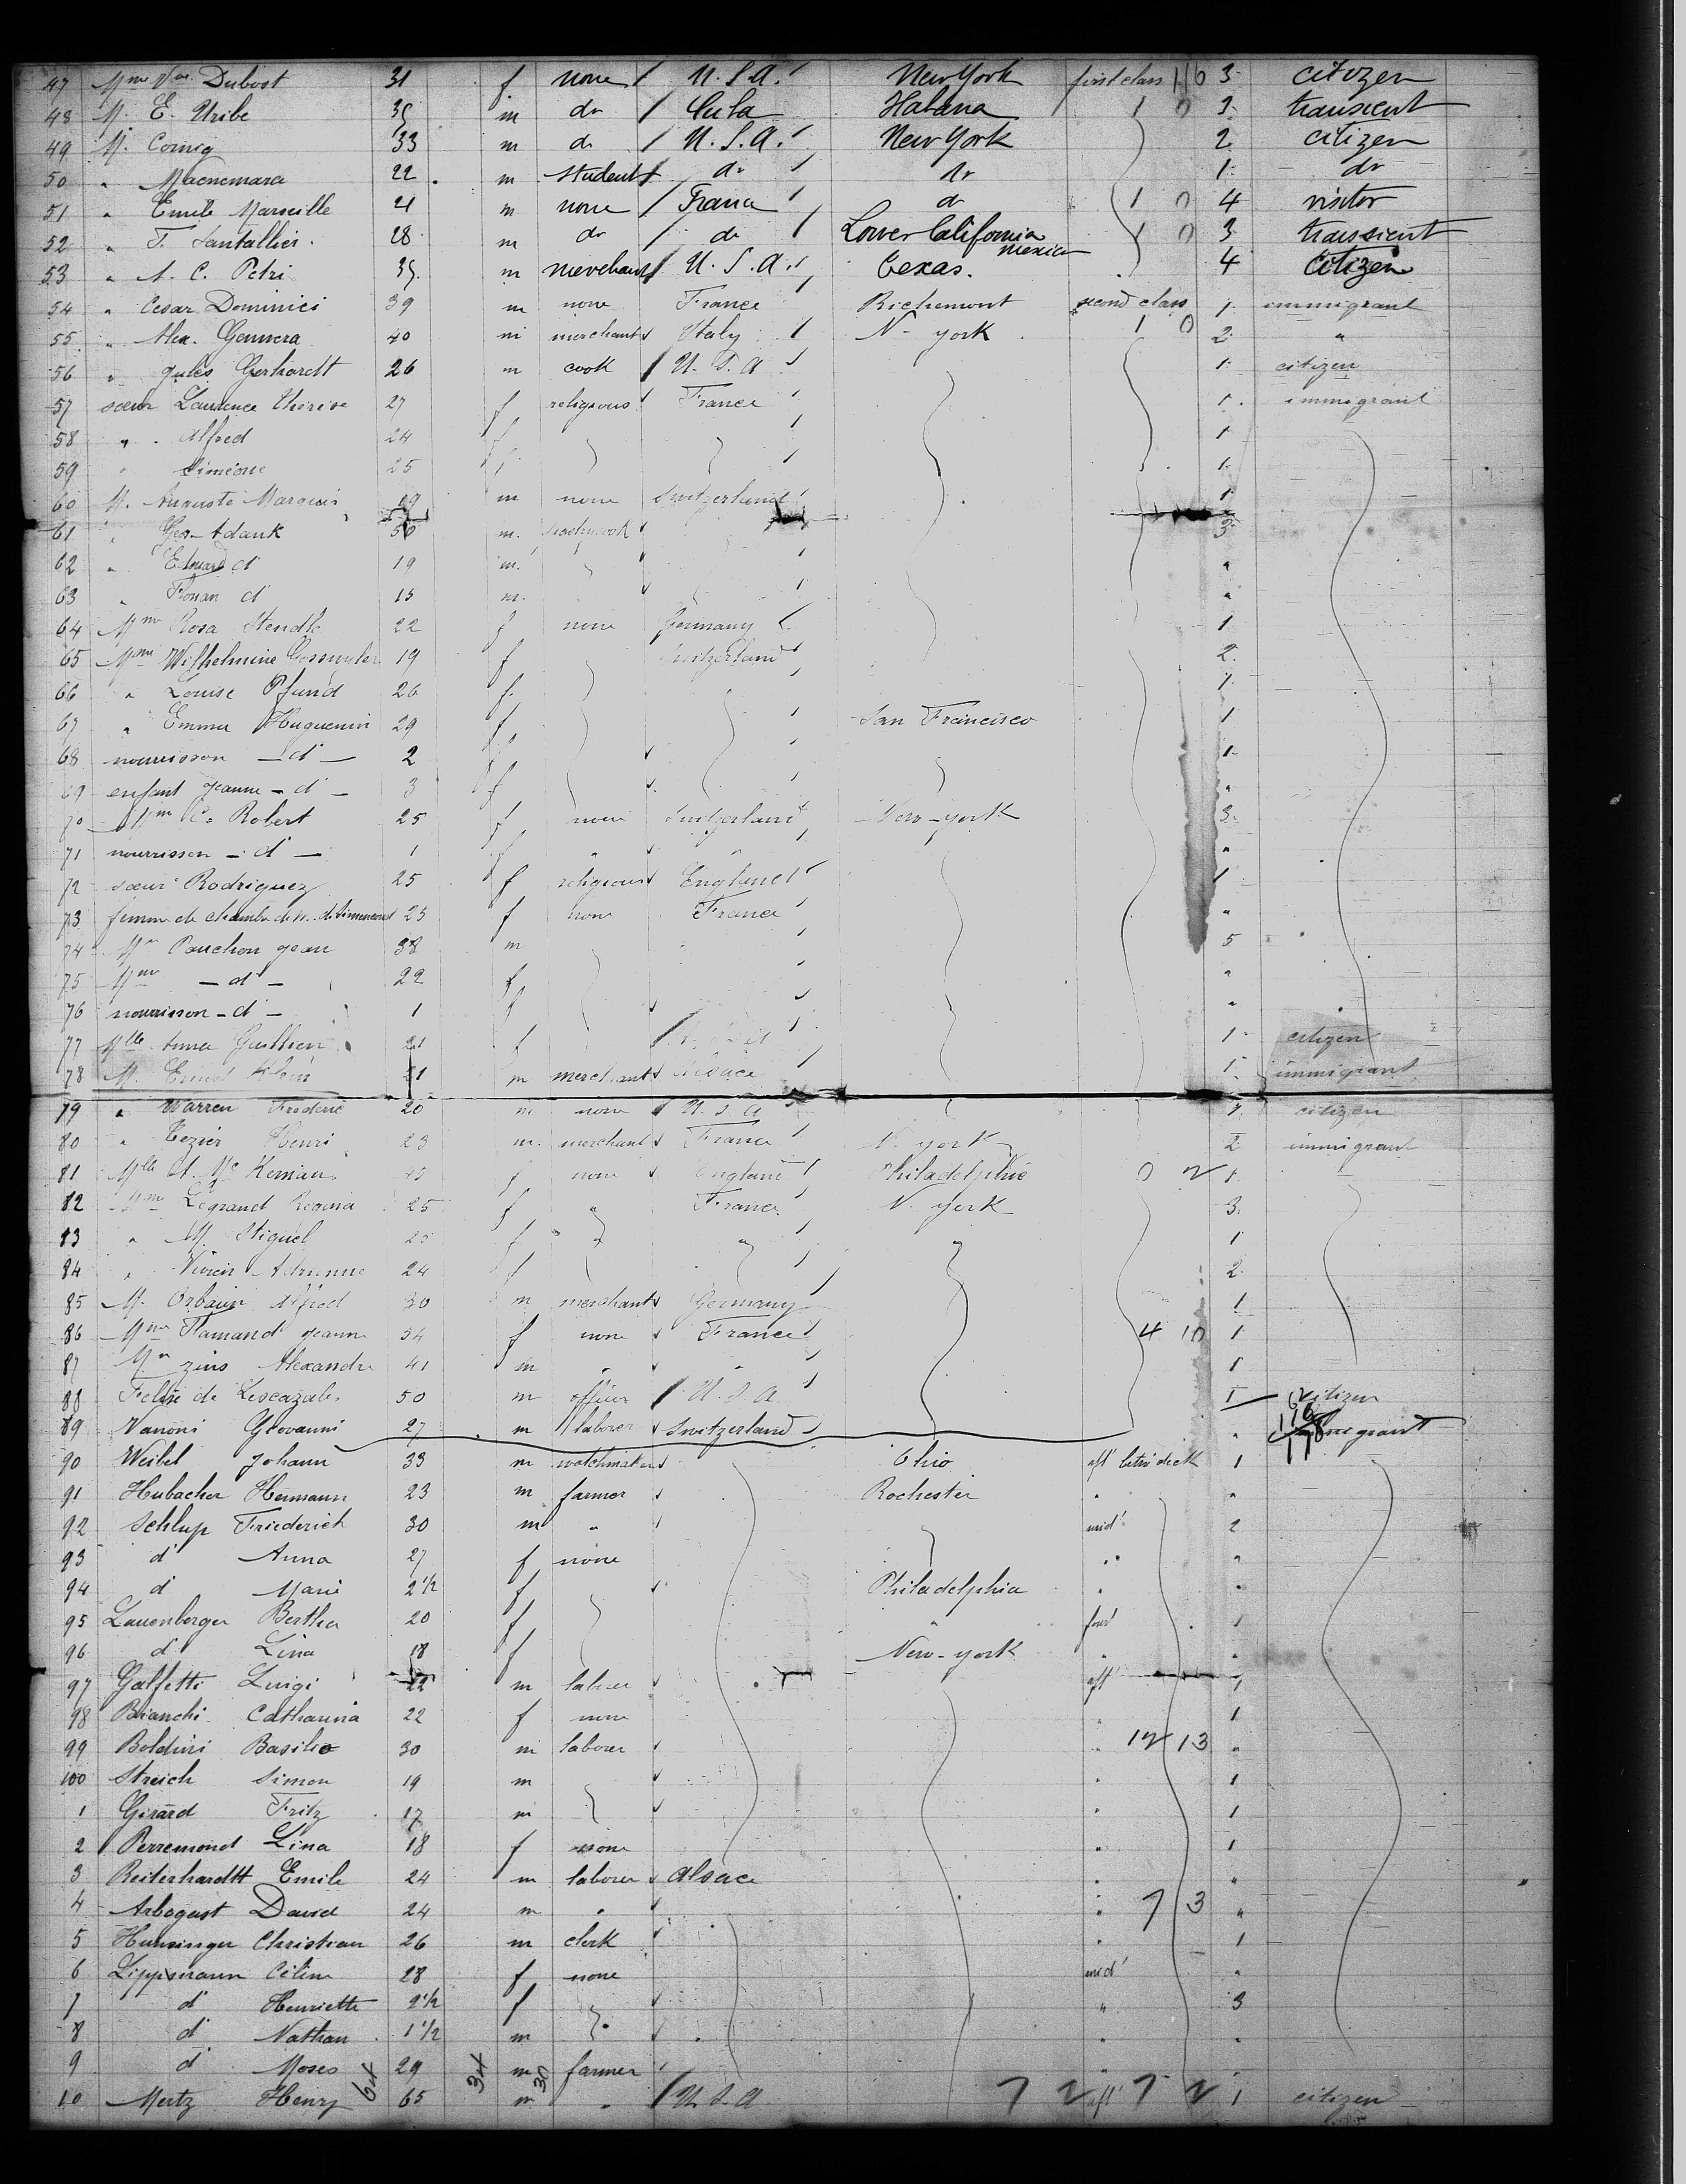 47 Mme Vve Dubost 31 f none U.S.A. New York first class 1 0 3 citizen
48 M. E. Uribe 35 m do Cuba Habana 1 0 3 transient
49 M. 33 m do U.S.A. New York 2 citizen
50 " Macnemara 22 m student do do 1 do
51 " Emile Marseille 21 m none France do 1 0 4 visitor
52 " F. Santallier 28 m do do Lower California Mexico 1 0 3 transient
53 " A. C. Petri 35 m merchant U.S.A. Texas. 4 citizen
54 " Cesar Dominici 39 m none France Richemont second class 1 immigrant
55 " Alex. 40 m merchant Italy N-york 1 0 2 "
56 " Jules Gerhardt 26 m cook U.S.A 1 citizen
57 sœur Laurence Thérèse 27 f religious France 1 immigrant
58 " Alfred 24 f 1
59 " Siméone 25 f 1
60 M. Auguste Marquis 19 m none Switzerland 1
61 " Geo-Adank 50 m. 3
62 " Edouard d° 19 m. "
63 " Florian d° 15 m. "
64 Mme Rosa Stendle 22 f none Germany 1
65 Mme Wilhelmine 19 f Switzerland 2
66 " Louise Pfund 26 f. 1
67 " Emma Huguenin 29 f San Francisco 1
68 nourrisson - d° - 2 f 1
69 enfant Jeanne - d° - 3 f "
70 Mme C. Robert 25 f none Switzerland New-york 3
71 nourrisson - d° - 1 f " " "
72 sœur Rodriguez 25 f religious England 1
73 femme de chambre de 25 f none France "
74 Mr Pauchon Jean 38 m 5
75 Mme - d° - 22 f "
76 nourrisson - d° - 1 f "
77 Mlle Anna 21 f 1 citizen
78 M. Ernest Klein 21 m merchant Alsace 1 immigrant
79 " Warren Frederic 20 m none U.S.A 1 citizen
80 " Tezier Henri 23 m. merchant France N. york 2 immigrant
81 Mlle A. Mc Kernian f none England Philadelphie 0 2 1
82 Mme Legrand Regina 25 f " France N. york 3
83 " M. Stiguel 25 f " " 1
84 " Vivien Adrienne 24 f 2
85 M. Orbain Alfred 30 m merchant Germany 1
86 Mme Flamand Jeanne 54 f none France 4 10 1
87 Mr Zins Alexandre 41 m " " 1
88 Felipe de Lescazales 50 m officer U.S.A 1 citizen
89 Vanoni Giovanni 27 m laborer Switzerland " immigrant
90 Weibel Johann 33 m watchmaker Ohio aft' betw' deck 1
91 Hubacher Hermann 23 m farmer Rochester " "
92 Schlup Friederich 30 m " mid' 2
93 d° Anna 27 f none " "
94 d° Marie 2 1/2 f Philadelphia " "
95 Lauenberger Bertha 20 f " for' 1
96 d° Lina 18 f New-york " "
97 Galfetti Luigi 22 m laborer aft' 1
98 Bianchi Catharina 22 f none " 1
99 Boldini Basilio 30 m laborer " 12 13 "
100 Streich Simon 19 m " 1
1 Girard Fritz 17 m " 1
2 Perremond Lina 18 f none " 1
3 Reiterhardtt Emile 24 m laborer Alsace " "
4 Arbogast David 24 m " " 7 3 "
5 Hunsinger Christian 26 m clerk " 1
6 Lippmann Céline 28 f none mid' "
7 d° Henriette 2 1/2 f " 3
8 d° Nathan 1 1/2 m " "
9 d° Moses 29 m farmer " "
10 Mertz Henry 65 m " U.S.A 7 2 aft' 7 2 1 citizen